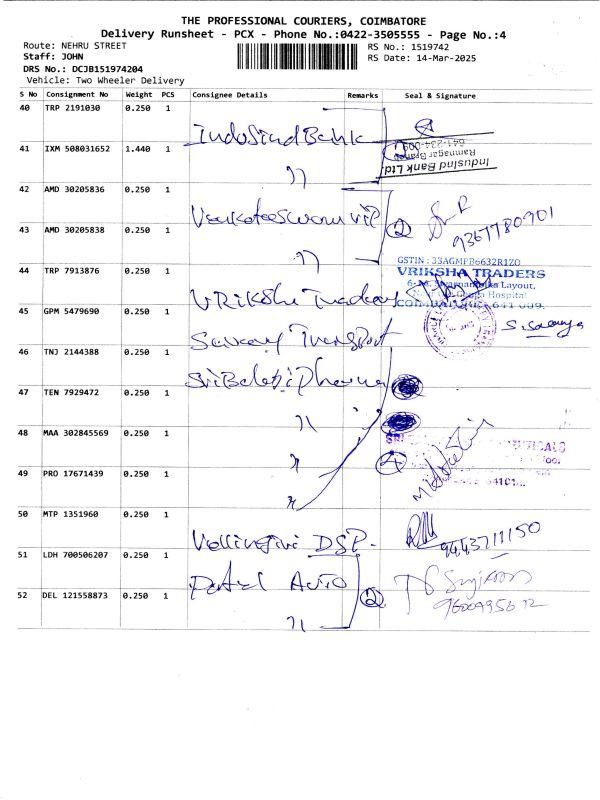 THE PROFESSIONAL COURIERS, COIMBATORE
Delivery Runsheet - PCX - Phone No.:0422-3505555 - Page No.:4
Route: NEHRU STREET
RS No.: 1519742
Staff: JOHN
RS Date: 14-Mar-2025
DRS No.: DCJB151974204
Vehicle: Two Wheeler Delivery
S No Consignment No Weight PCS Consignee Details Remarks Seal & Signature
40 TRP 2191030 0.250 1
IndusInd Bank
41 IXM 508031652 1.440 1
641-234-009
Ramnagar Branch
IndusInd Bank Ltd.
42 AMD 30205836 0.250 1
2
9367780901
43 AMD 30205838 0.250 1
GSTIN : 33AGMPB6632R1Z0
44 TRP 7913876 0.250 1
VRIKSHA TRADERS
Layout,
Hospital
45 GPM 5479690 0.250 1
Transport
S. Saranya
46 TNJ 2144388 0.250 1
Sri Balaji Pharma
47 TEN 7929472 0.250 1
48 MAA 302845569 0.250 1
4
49 PRO 17671439 0.250 1
50 MTP 1351960 0.250 1
Vellingiri DSP.
9443711150
51 LDH 700506207 0.250 1
Patel Auto
52 DEL 121558873 0.250 1
2